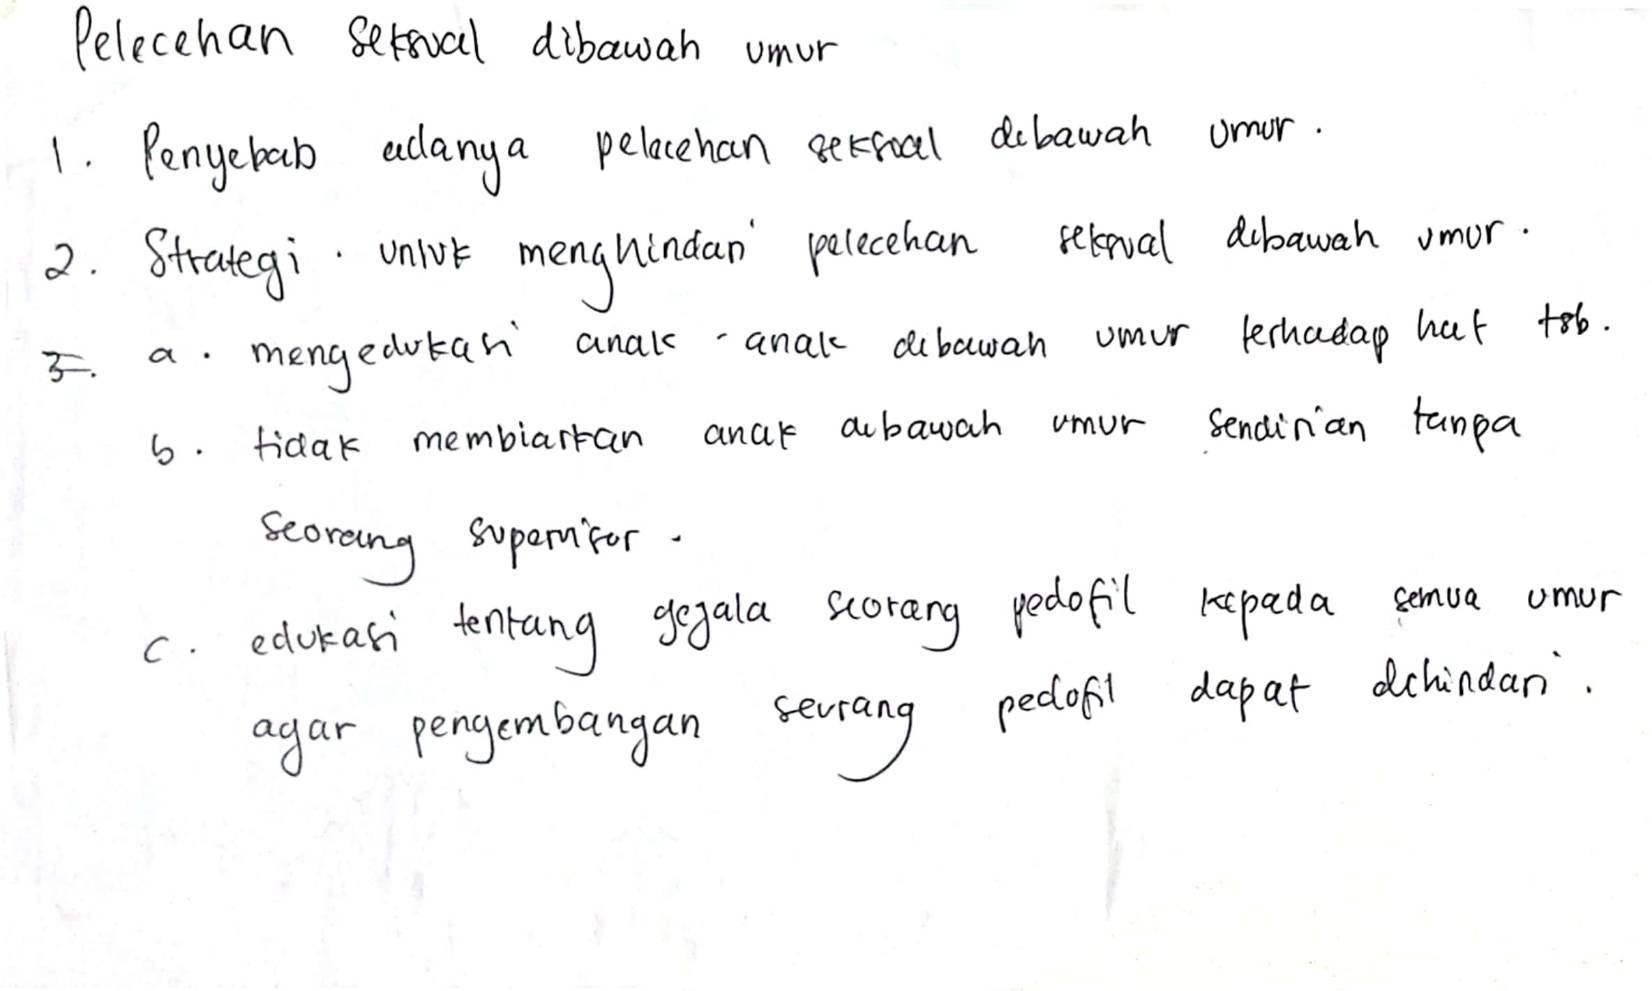 Pelecehan seksual dibawah umur
1. Penyebab adanya pelecehan seksual dibawah umur.
2. Strategi. untuk menghindari pelecehan seksual dibawah umur.
3. a. mengedukasi anak-anak dibawah umur terhadap hal tsb.
b. tidak membiarkan anak dibawah umur sendirian tanpa
seorang supervisor.
c. edukasi tentang gejala seorang pedofil kepada semua umur
agar pengembangan seorang pedofil dapat dihindari.